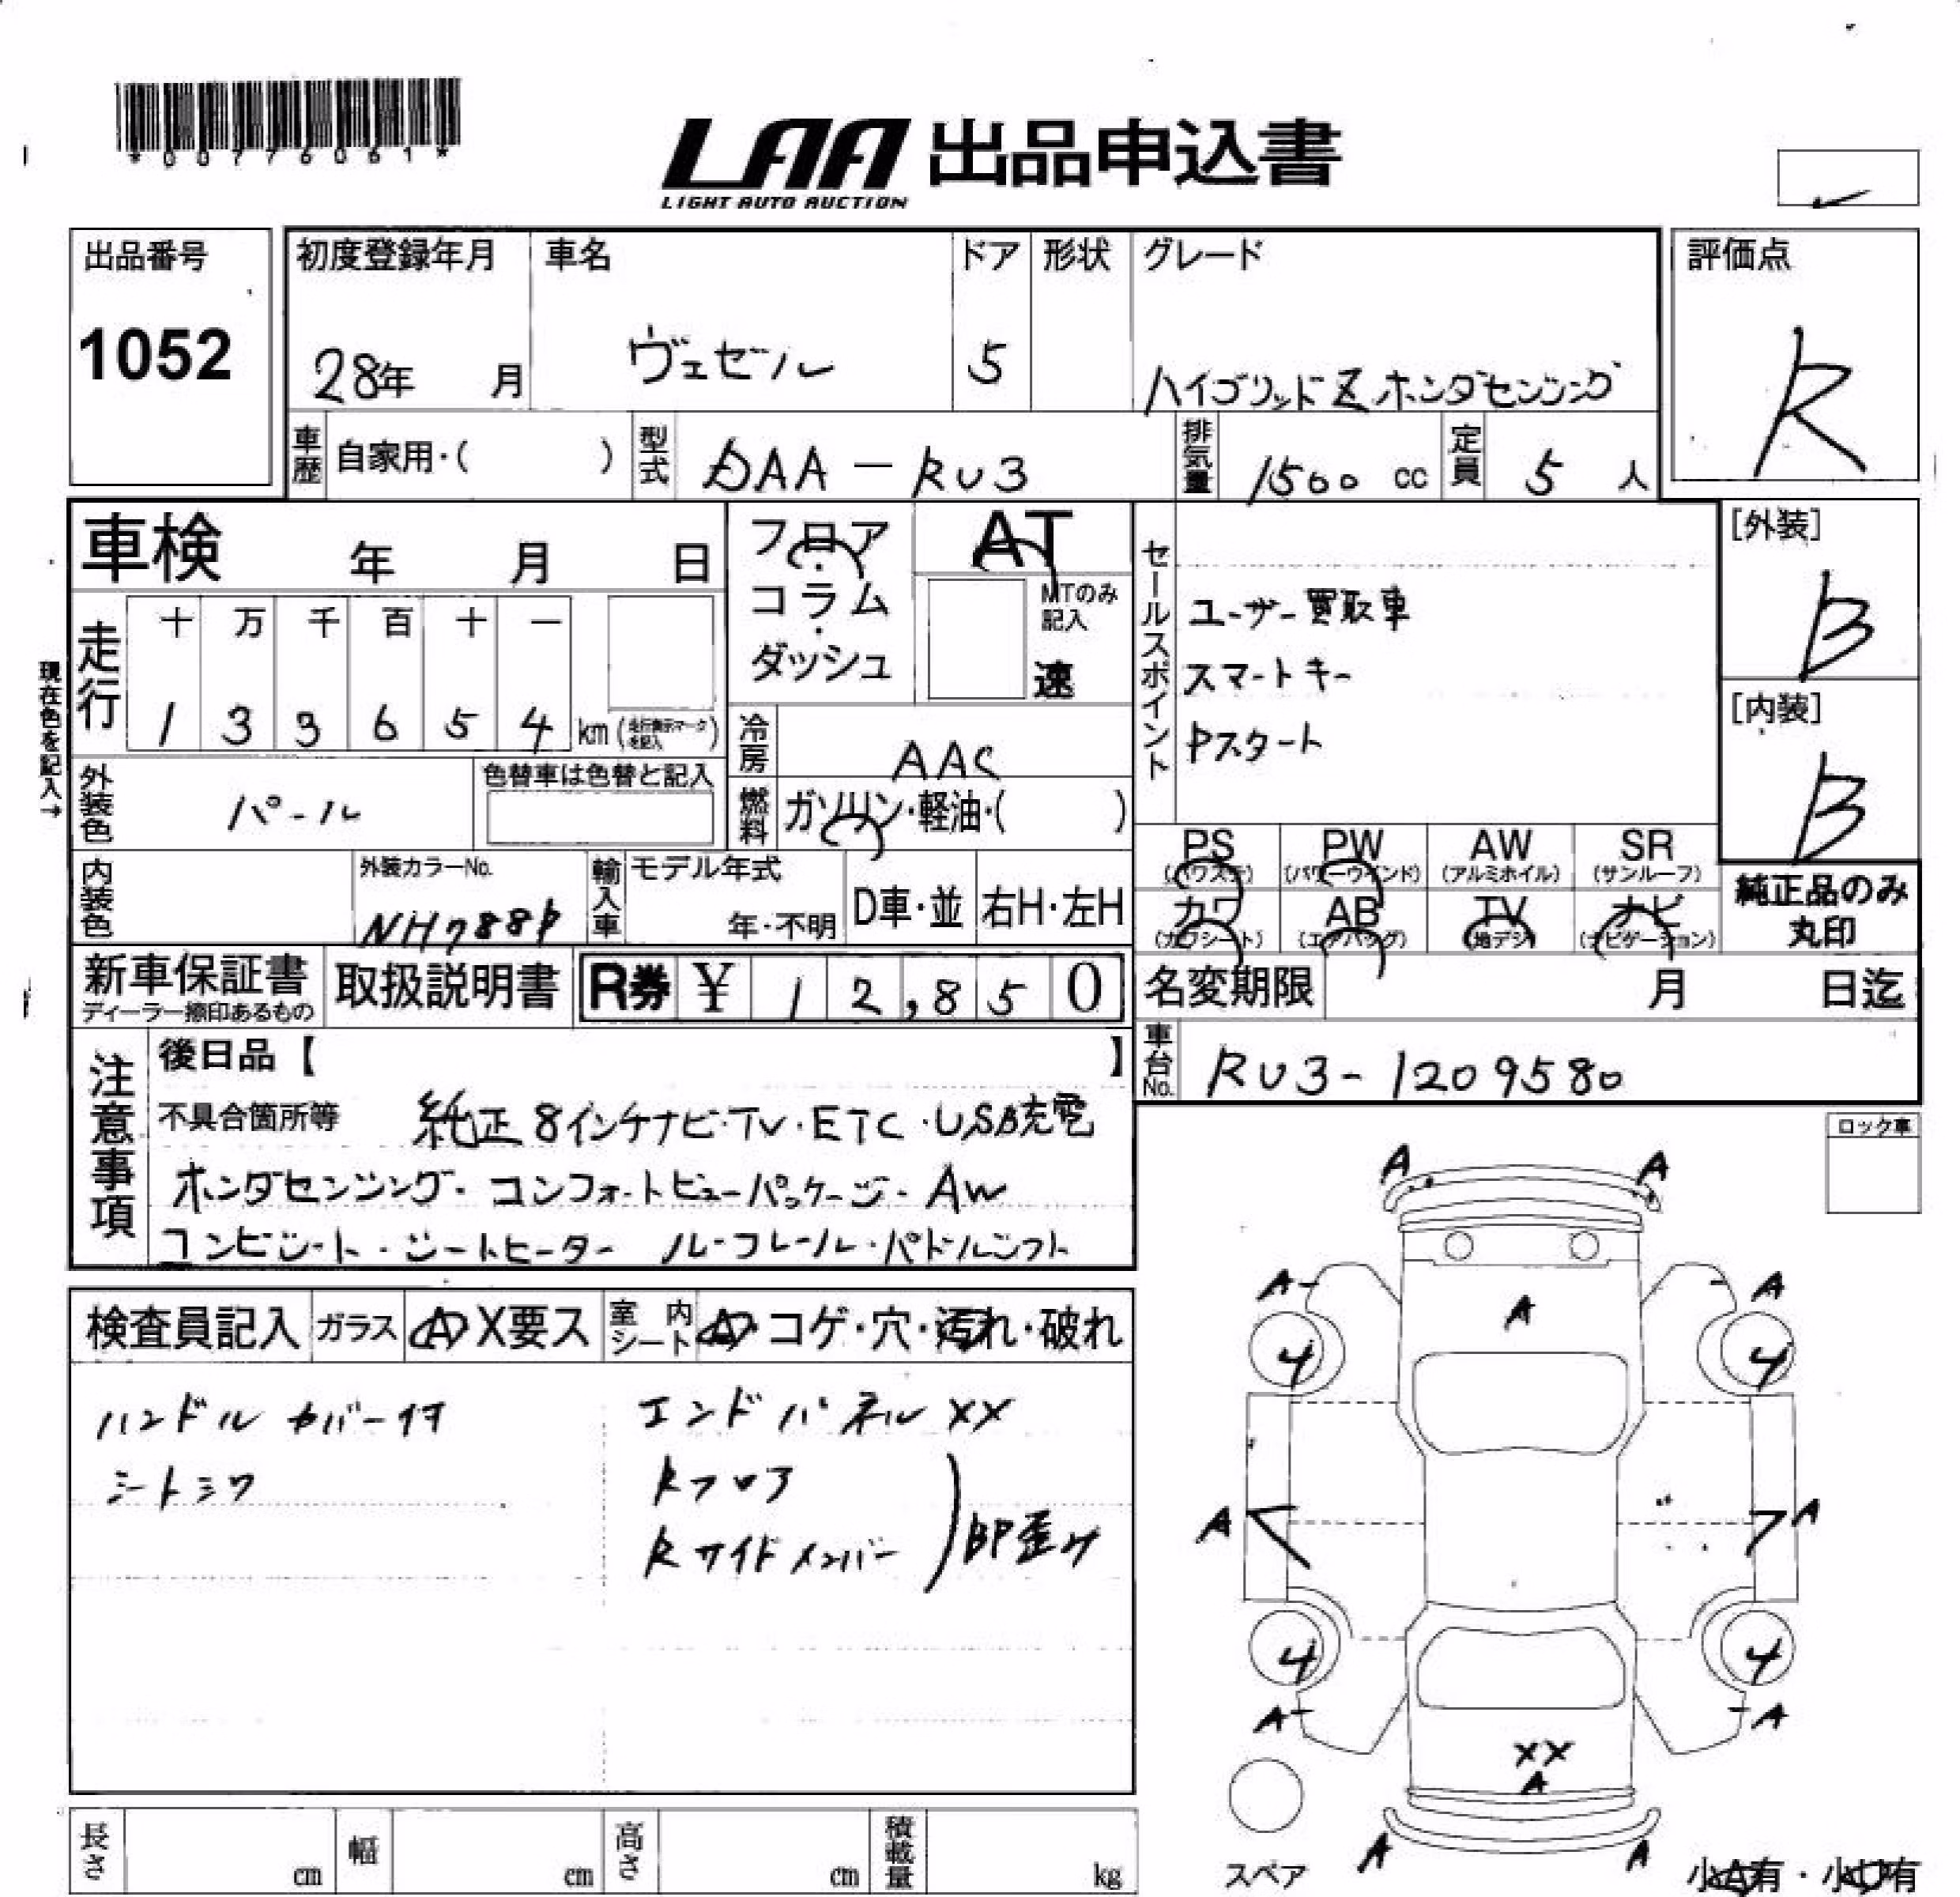 *00776061*
LAA 出品申込書
LIGHT AUTO AUCTION
出品番号
1052
初度登録年月
28年 月
車名
ヴェゼル
ドア
5
形状
グレード
ハイブリッドZ ホンダセンシング
評価点
R
車歴 自家用・( )
型式 DAA-RU3
排気量 1500 cc
定員 5 人
車検 年 月 日
走行 十 万 千 百 十 一
1 3 3 6 5 4 km (走行表示マークを記入)
現在色を記入→
フロア・コラム・ダッシュ
AT
MTのみ記入
速
冷房 AAC
燃料 ガソリン・軽油・( )
セールスポイント
ユーザー買取車
スマートキー
Pスタート
[外装]
B
[内装]
B
外装色 パール
色替車は色替と記入
内装色
外装カラーNo.
NH788P
輸入車
モデル年式
年・不明
D車・並
右H・左H
PS (パワステ)
PW (パワーウインド)
AW (アルミホイル)
SR (サンルーフ)
カワ (カワシート)
AB (エアバッグ)
TV (地デジ)
ナビ (ナビゲーション)
純正品のみ
丸印
新車保証書
ディーラー捺印あるもの
取扱説明書
R券 ¥ 12,850
名変期限 月 日迄
車台No. RU3-1209580
注意事項
後日品【 】
不具合箇所等 純正8インチナビ・TV・ETC・USB充電
ホンダセンシング・コンフォートビューパッケージ・AW
コンビシート・シートヒーター ルーフレール・パドルシフト
ロック車
検査員記入 ガラス A X要ス
室内シート A・コゲ・穴・汚れ・破れ
ハンドルカバー付
シートシワ
エンドパネル XX
Rフロア
Rサイドメンバー
BP歪み
A A
A A
A
4 4
A A
4 4
A A
XX
A
A A
スペア
小A有・小U有
長さ cm
幅 cm
高さ cm
積載量 kg